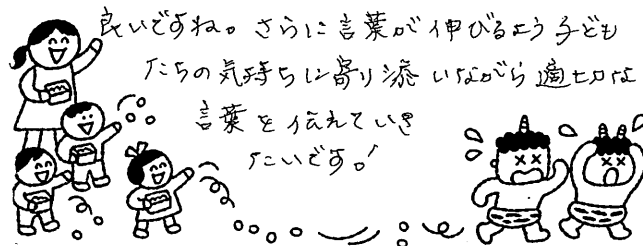 良いですね。さらに言葉が伸びるよう子ども
たちの気持ちに寄り添いながら適切な
言葉を伝えていき
たいです。!